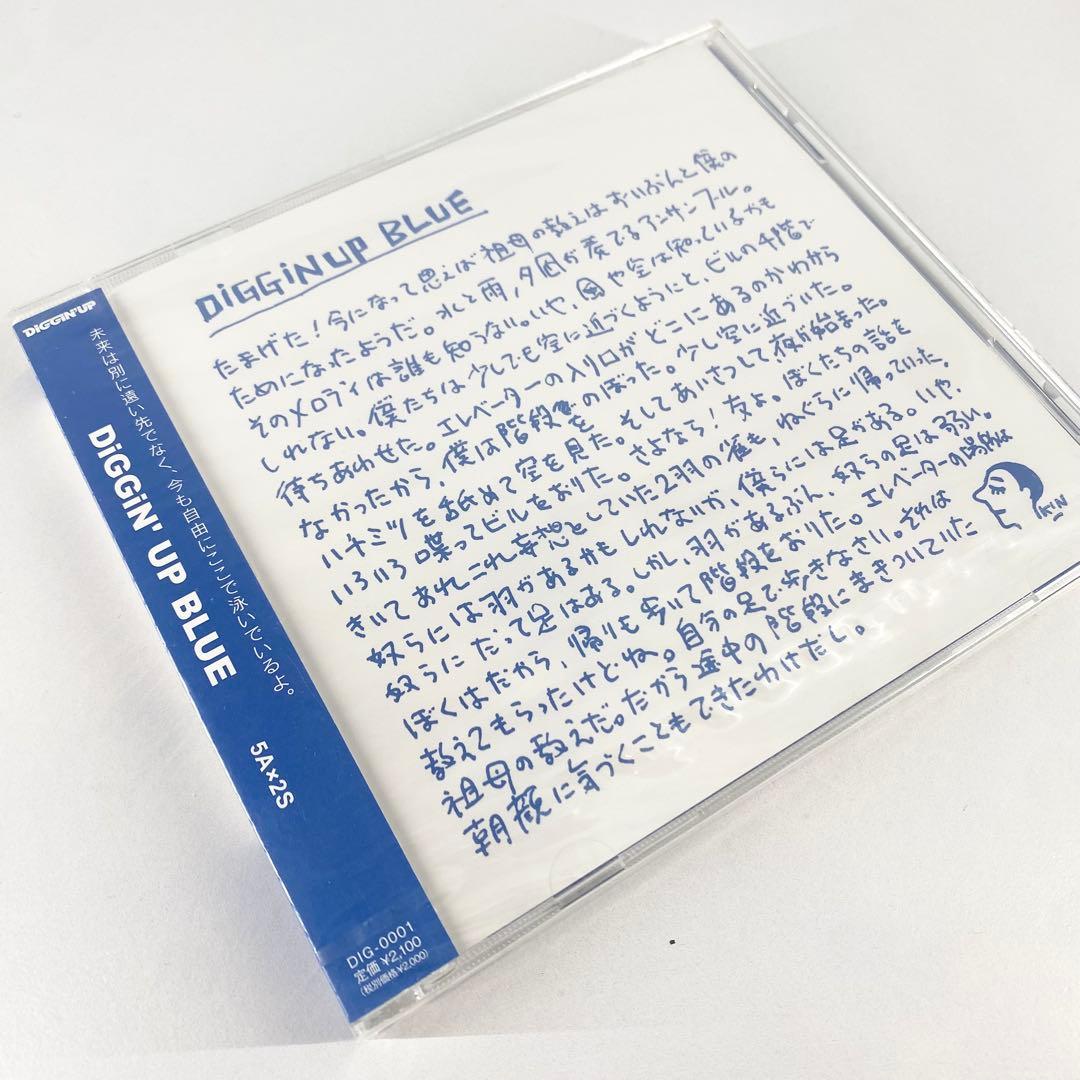 DiGGiN'UP
未来は別に遠い先でなく、今も自由にここで泳いでいるよ。
DiGGiN' UP BLUE
5A×2S
DIG-0001
定価 ¥2,100
(税別価格¥2,000)
DiGGiN UP BLUE
たまげた!今になって思えば祖母の教えはずいぶんと僕の
ためになったようだ。水と雨、夕凪が奏でるアンサンブル。
そのメロディは誰も知らない。いや、風や空は知っているかも
しれない。僕たちは少しでも空に近づくようにと、ビルの4階で
待ちあわせた。エレベーターの入り口がどこにあるのかわから
なかったから、僕は階段をのぼった。少し空に近づいた。
ハチミツを舐めて空を見た。そしてあいさつして夜が始まった。
いろいろ喋ってビルをおりた。さよなら!友よ。ぼくたちの話を
きいてあれこれ妄想としていた2羽の雀も、ねぐらに帰っていった。
奴らには羽があるかもしれないが、僕らには足がある。いや、
奴らにだって足はある。しかし羽があるぶん、奴らの足は弱い。
ぼくはだから、帰りも歩いて階段をおりた。エレベーターの場所は
教えてもらったけどね。自分の足で歩きなさい。それは
祖母の教えだ。だから途中の階段にまきついていた
朝顔に気づくこともできたわけだし。
KIN